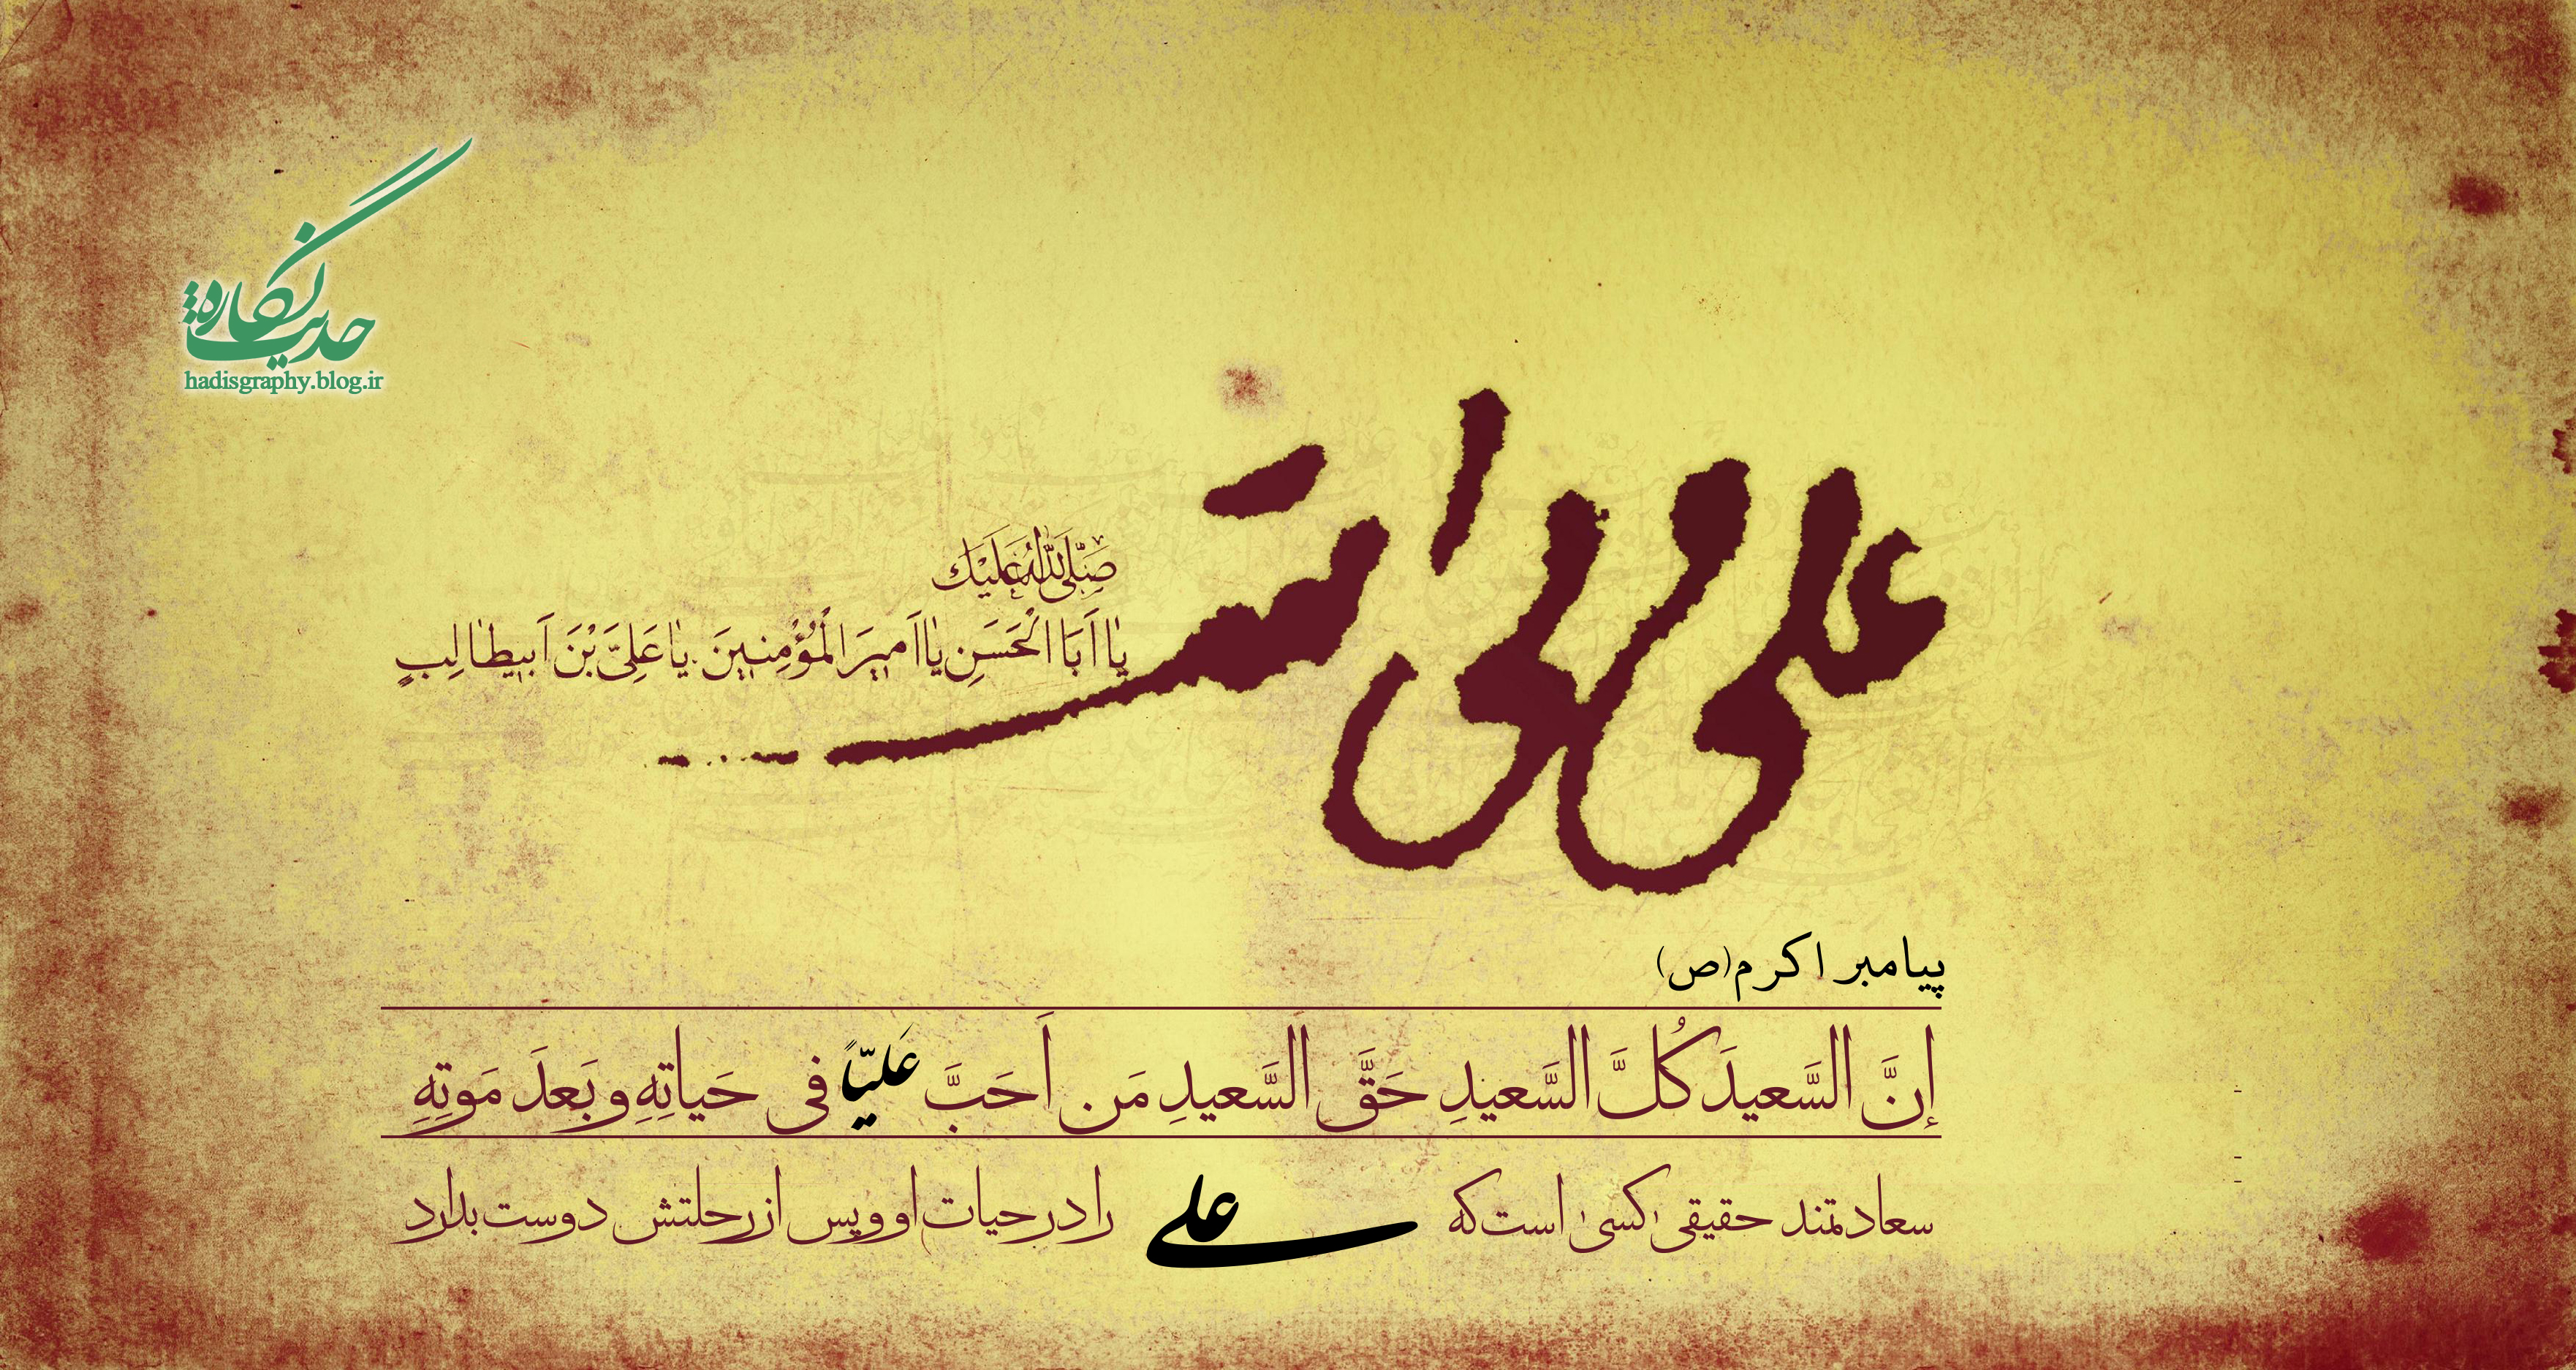 حدیث‌نگاره
hadisgraphy.blog.ir
علی ولی الله
صَلَّی اللهُ عَلَیْكَ
یٰا اَبَا الْحَسَنِ یٰا اَمیرَ الْمُؤْمِنینَ یٰا عَلِیَّ بْنَ اَبیطٰالِبٍ
پیامبر اکرم(ص)
إنَّ السَّعیدَ کُلَّ السَّعیدِ حَقَّ السَّعیدِ مَن اَحَبَّ عَلیّاً فی حَیاتِهِ و بَعدَ مَوتِهِ
سعادتمند حقیقی کسی است که علی را در حیات او و پس از رحلتش دوست بدارد